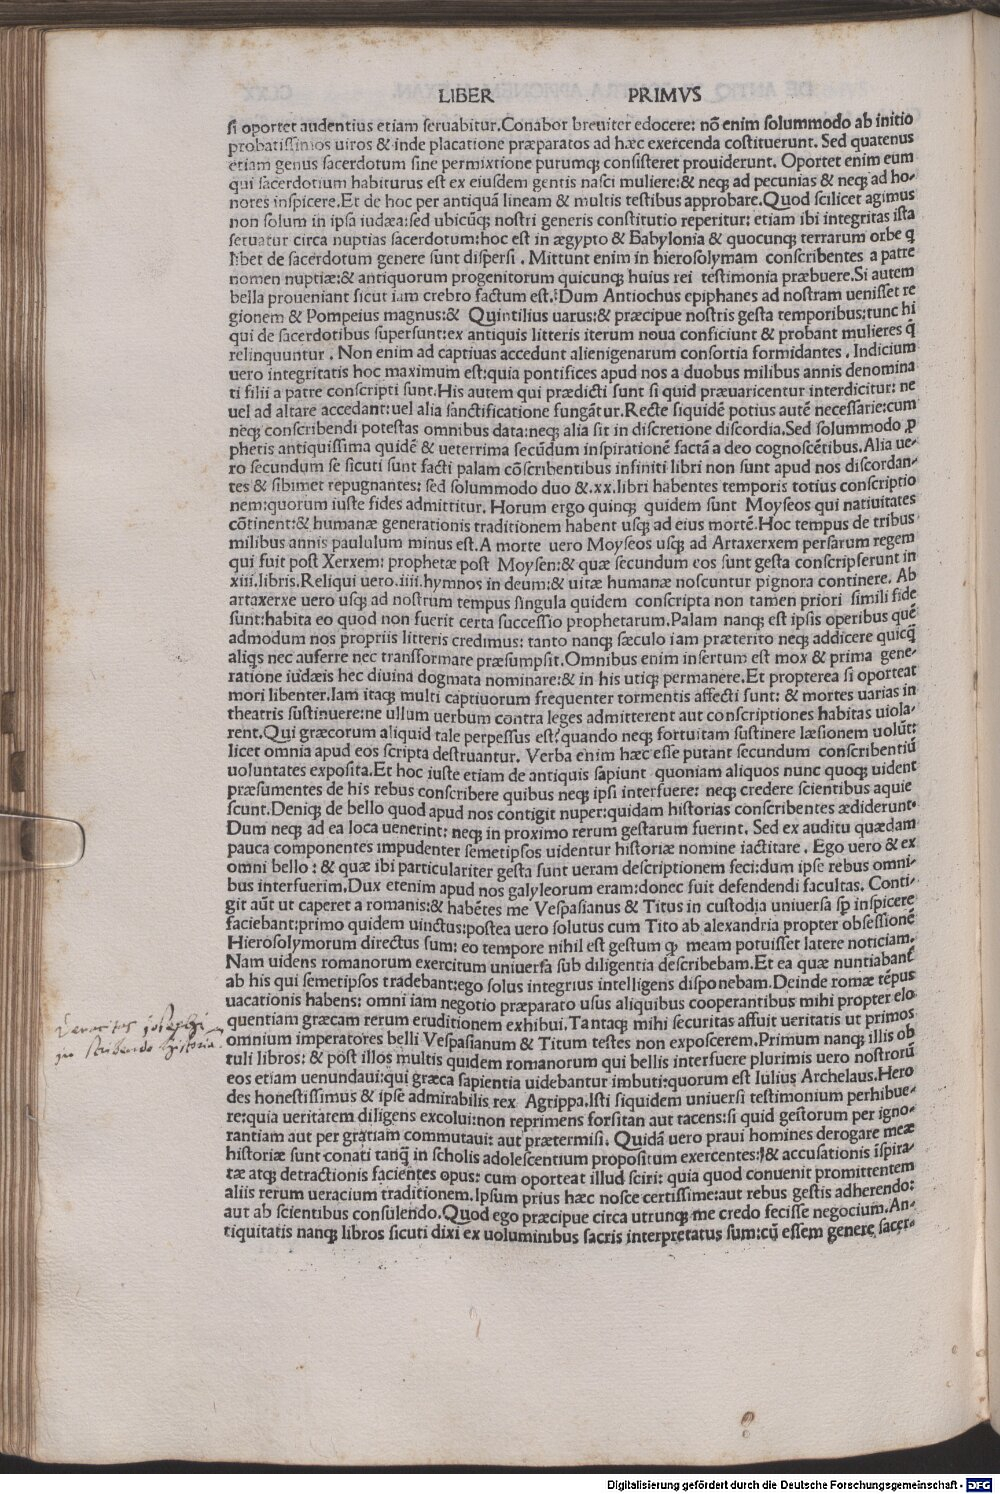 LIBER PRIMVS
si oportet audentius etiam seruabitur.Conabor breuiter edocere: nō enim solummodo ab initio
probatissimos uiros & inde placatione præparatos ad hæc exercenda cōstituerunt. Sed quatenus
etiam genus sacerdotum sine permixtione purumqꝫ consisteret prouiderunt. Oportet enim eum
qui sacerdotium habiturus est ex eiusdem gentis nasci muliere:& neqꝫ ad pecunias & neqꝫ ad ho-
nores inspicere.Et de hoc per antiquā lineam & multis testibus approbare.Quod scilicet agimus
non solum in ipsa iudæa:sed ubicūqꝫ nostri generis constitutio reperitur: etiam ibi integritas ista
seruatur circa nuptias sacerdotum:hoc est in ægypto & Babylonia & quocunqꝫ terrarum orbe q
libet de sacerdotum genere sunt dispersi . Mittunt enim in hierosolymam conscribentes a patre
nomen nuptiæ:& antiquorum progenitorum quicunqꝫ huius rei testimonia præbuere.Si autem
bella proueniant sicut iam crebro factum est.Dum Antiochus epiphanes ad nostram uenisset re
gionem & Pompeius magnus:& Quintilius uarus:& præcipue nostris gesta temporibus:tunc hi
qui de sacerdotibus supersunt:ex antiquis litteris iterum noua conficiunt & probant mulieres q̄
relinquuntur . Non enim ad captiuas accedunt alienigenarum consortia formidantes . Indicium
uero integritatis hoc maximum est:quia pontifices apud nos a duobus milibus annis denomina
ti filii a patre conscripti sunt.His autem qui prædicti sunt si quid præuaricentur interdicitur: ne
uel ad altare accedant:uel alia sanctificatione fungātur.Recte siquidē potius autē necessarie:cum
neqꝫ conscribendi potestas omnibus data:neqꝫ alia sit in discretione discordia.Sed solummodo ꝓ
phetis antiquissima quidē & ueterrima secūdum inspirationē factā a deo cognoscētibus.Alia ue-
ro secundum se sicuti sunt facti palam cōscribentibus infiniti libri non sunt apud nos discordan-
tes & sibimet repugnantes: sed solummodo duo &.xx.libri habentes temporis totius conscriptio
nem:quorum iuste fides admittitur. Horum ergo quinqꝫ quidem sunt Moyseos qui natiuitates
cōtinent:& humanæ generationis traditionem habent usqꝫ ad eius mortē.Hoc tempus de tribus
milibus annis paululum minus est.A morte uero Moyseos usqꝫ ad Artaxerxem persarum regem
qui fuit post Xerxem: prophetæ post Moysen:& quæ secundum eos sunt gesta conscripserunt in
xiii.libris.Reliqui uero.iiii.hymnos in deum:& uitæ humanæ noscuntur pignora continere. Ab
artaxerxe uero usqꝫ ad nostrum tempus singula quidem conscripta non tamen priori simili fide
sunt:habita eo quod non fuerit certa successio prophetarum.Palam nanqꝫ est ipsis operibus quē
admodum nos propriis litteris credimus: tanto nanqꝫ sæculo iam præterito neqꝫ addicere quicq̄
aliqs nec auferre nec transformare præsumpsit.Omnibus enim insertum est mox & prima gene-
ratione iudæis hec diuina dogmata nominare:& in his utiqꝫ permanere.Et propterea si oporteat
mori libenter.Iam itaqꝫ multi captiuorum frequenter tormentis affecti sunt: & mortes uarias in
theatris sustinuere:ne ullum uerbum contra leges admitterent aut conscriptiones habitas uiola-
rent.Qui græcorum aliquid tale perpessus est?quando neqꝫ fortuitam sustinere læsionem uolūt:
licet omnia apud eos scripta destruantur. Verba enim hæc esse putant secundum conscribentiū
uoluntates exposita.Et hoc iuste etiam de antiquis sapiunt quoniam aliquos nunc quoqꝫ uident
præsumentes de his rebus conscribere quibus neqꝫ ipsi interfuere: neqꝫ credere scientibus aquie
scunt.Deniqꝫ de bello quod apud nos contigit nuper:quidam historias conscribentes ædiderunt.
Dum neqꝫ ad ea loca uenerint: neqꝫ in proximo rerum gestarum fuerint. Sed ex auditu quædam
pauca componentes impudenter semetipsos uidentur historiæ nomine iactitare . Ego uero & ex
omni bello : & quæ ibi particulariter gesta sunt ueram descriptionem feci:dum ipse rebus omni-
bus interfuerim.Dux etenim apud nos galyleorum eram:donec fuit defendendi facultas. Conti-
git aūt ut caperer a romanis:& habētes me Vespasianus & Titus in custodia uniuersa sp̄ inspicere
faciebant:primo quidem uinctus:postea uero solutus cum Tito ab alexandria propter obsessionē
Hierosolymorum directus sum: eo tempore nihil est gestum qꝫ meam potuisset latere noticiam.
Nam uidens romanorum exercitum uniuersa sub diligentia describebam.Et ea quæ nuntiabant̄
ab his qui semetipsos tradebant:ego solus integrius intelligens disponebam.Deinde romæ tēpus
uacationis habens: omni iam negotio præparato usus aliquibus cooperantibus mihi propter elo
quentiam græcam rerum eruditionem exhibui.Tantaqꝫ mihi securitas affuit ueritatis ut primos
omnium imperatores belli Vespasianum & Titum testes non exposcerem.Primum nanqꝫ illis ob
tuli libros: & post illos multis quidem romanorum qui bellis interfuere plurimis uero nostrorū
eos etiam uenundaui:qui græca sapientia uidebantur imbuti:quorum est Iulius Archelaus.Hero
des honestissimus & ipse admirabilis rex Agrippa.Isti siquidem uniuersi testimonium perhibue-
re:quia ueritatem diligens excolui:non reprimens forsitan aut tacens:si quid gestorum per igno-
rantiam aut per gratiam commutaui: aut prætermisi. Quidā uero praui homines derogare meæ
historiæ sunt conati tanq̄ in scholis adolescentium propositum exercentes:& accusationis īspira-
tæ atqꝫ detractionis facientes opus: cum oporteat illud sciri: quia quod conuenit promittentem
aliis rerum ueracium traditionem.Ipsum prius hæc nosce certissime:aut rebus gestis adherendo:
aut ab scientibus consulendo.Quod ego præcipue circa utrunqꝫ me credo fecisse negocium.An-
tiquitatis nanqꝫ libros sicuti dixi ex uoluminibus sacris interpretatus sum:cū essem genere sacer-
Veracitas josephi
in scribendo historia.
Digitalisierung gefördert durch die Deutsche Forschungsgemeinschaft - DFG